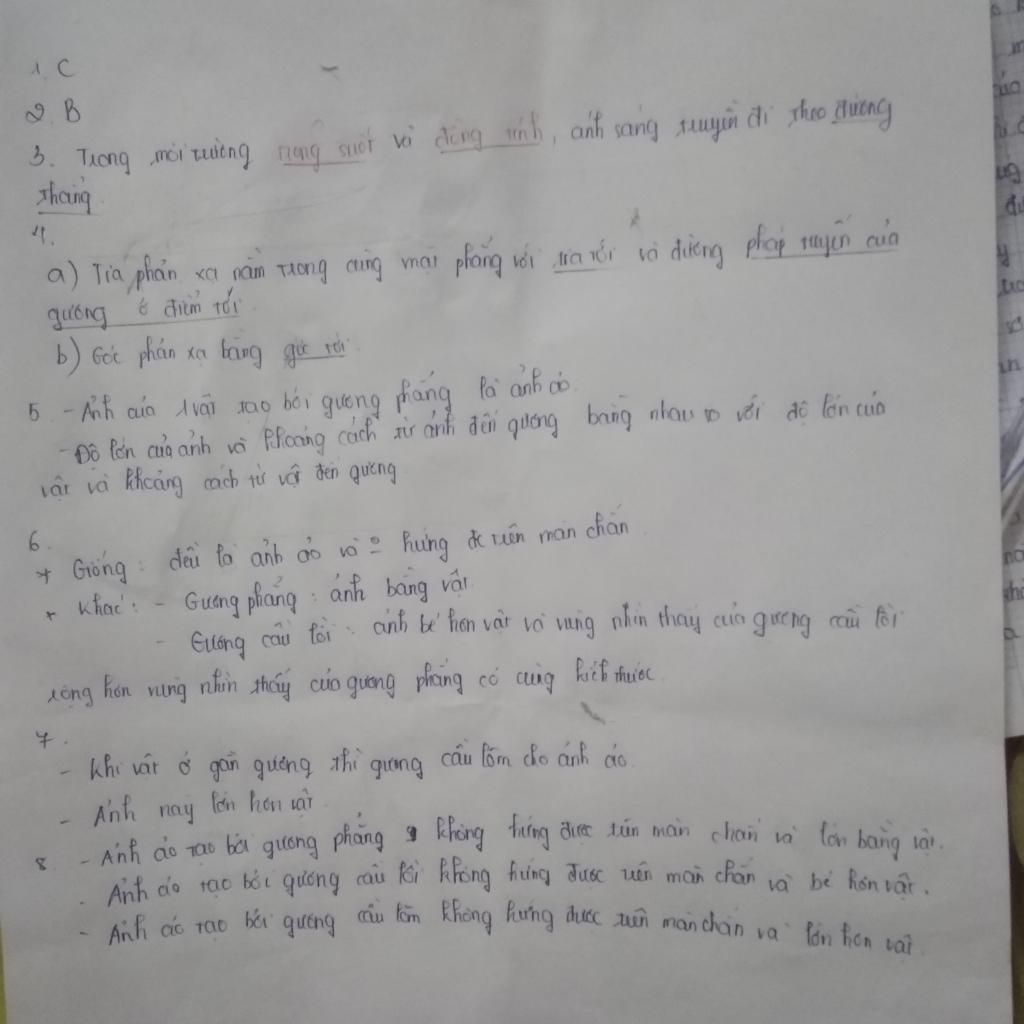 1. C
2. B
3. Trong môi trường trong suốt và đồng tính, ánh sáng truyền đi theo đường
thẳng.
4.
a) Tia phản xạ nằm trong cùng mặt phẳng với tia tới và đường pháp tuyến của
gương ở điểm tới.
b) Góc phản xạ bằng góc tới.
5 - Ảnh của 1 vật tạo bởi gương phẳng là ảnh ảo.
- Độ lớn của ảnh và khoảng cách từ ảnh đến gương bằng nhau so với độ lớn của
vật và khoảng cách từ vật đến gương
6.
* Giống: đều là ảnh ảo và hứng đc trên màn chắn.
* Khác: - Gương phẳng: ảnh bằng vật.
- Gương cầu lồi: ảnh bé hơn vật và vùng nhìn thấy của gương cầu lồi
rộng hơn vùng nhìn thấy của gương phẳng có cùng kích thước.
7.
- Khi vật ở gần gương thì gương cầu lõm cho ảnh ảo.
- Ảnh này lớn hơn vật.
8 - Ảnh ảo tạo bởi gương phẳng không hứng được trên màn chắn và lớn bằng vật.
. Ảnh ảo tạo bởi gương cầu lồi không hứng được trên màn chắn và bé hơn vật.
- Ảnh ảo tạo bởi gương cầu lõm không hứng được trên màn chắn và lớn hơn vật.